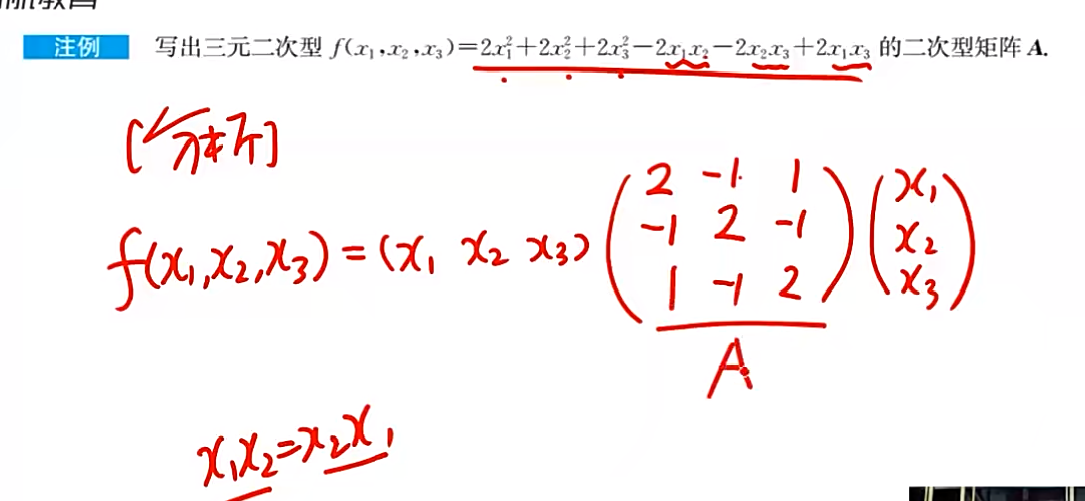 注例 写出三元二次型 f(x₁,x₂,x₃)=2x₁²+2x₂²+2x₃²-2x₁x₂-2x₂x₃+2x₁x₃ 的二次型矩阵 A.
[分析]
f(x₁,x₂,x₃)=(x₁ x₂ x₃)(2 -1 1
-1 2 -1
1 -1 2)(x₁
x₂
x₃)
A
x₁x₂=x₂x₁